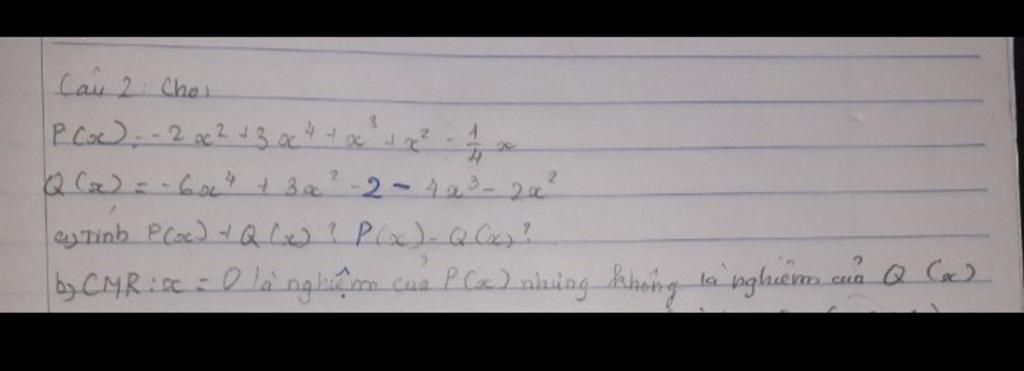 Câu 2: Cho:
P(x) = -2x² + 3x⁴ + x³ + x² - 1/4 x
Q(x) = -6x⁴ + 3x² - 2 - 4x³ - 2x²
a, Tính P(x) + Q(x) ? P(x) - Q(x) ?
b, CMR: x = 0 là nghiệm của P(x) nhưng không là nghiệm của Q(x)